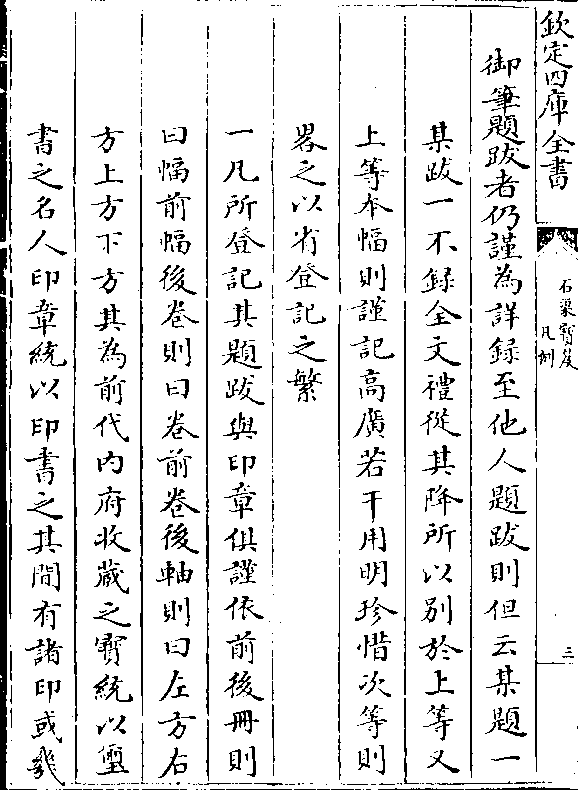 欽定四庫全書
石渠寶笈
凡例
三
御筆題跋者仍謹為詳錄至他人題跋則但云某題一
某跋一不錄全文禮從其降所以別於上等又
上等本幅則謹記高廣若干用明珍惜次等則
畧之以省登記之繁
一凡所登記其題跋與印章俱謹依前後冊則
曰幅前幅後卷則曰卷前卷後軸則曰左方右
方上方下方其為前代内府收藏之寶統以璽
書之名人印章統以印書之其間有諸印或幾